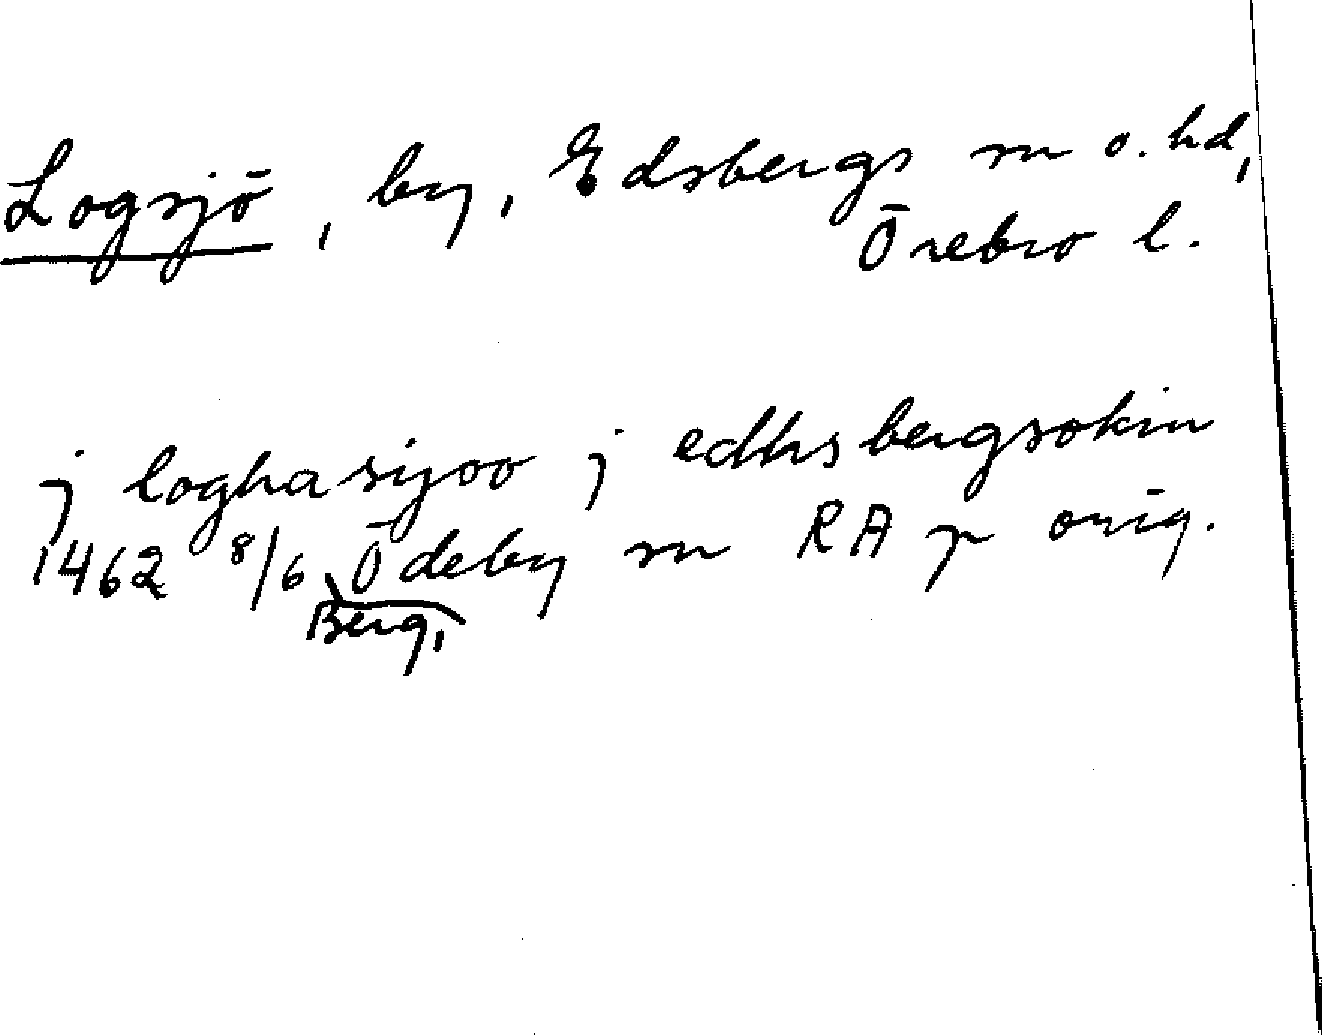 Logsjö, by, Edsbergs sn o. hd,
Örebro l.
j logha sijoo j edhsbergsokin
1462 8/6 Ödeby sn RA p orig.
Berg,